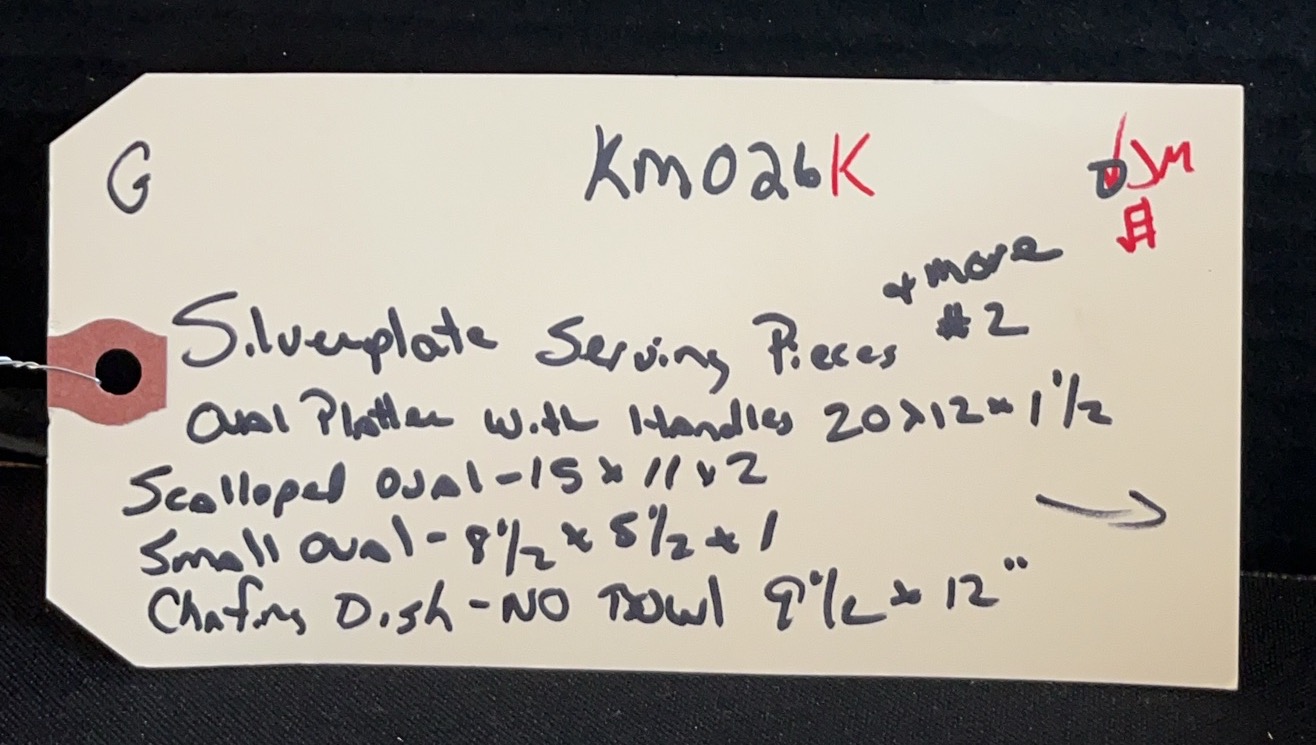 G KM026K
& more
Silverplate Serving Pieces #2
Oval Platter with Handles 20x12x1 1/2
Scalloped Oval-15x11x2
Small Oval-8 1/2 x 5 1/2 x 1
Chafing Dish-NO Bowl 9 1/2 x 12"